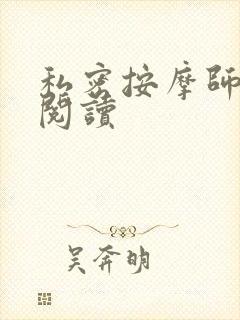 私密按摩師
閱讀
吴奔明